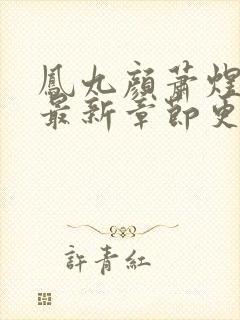 鳳九顏蕭煌
最新章節更
許青紅